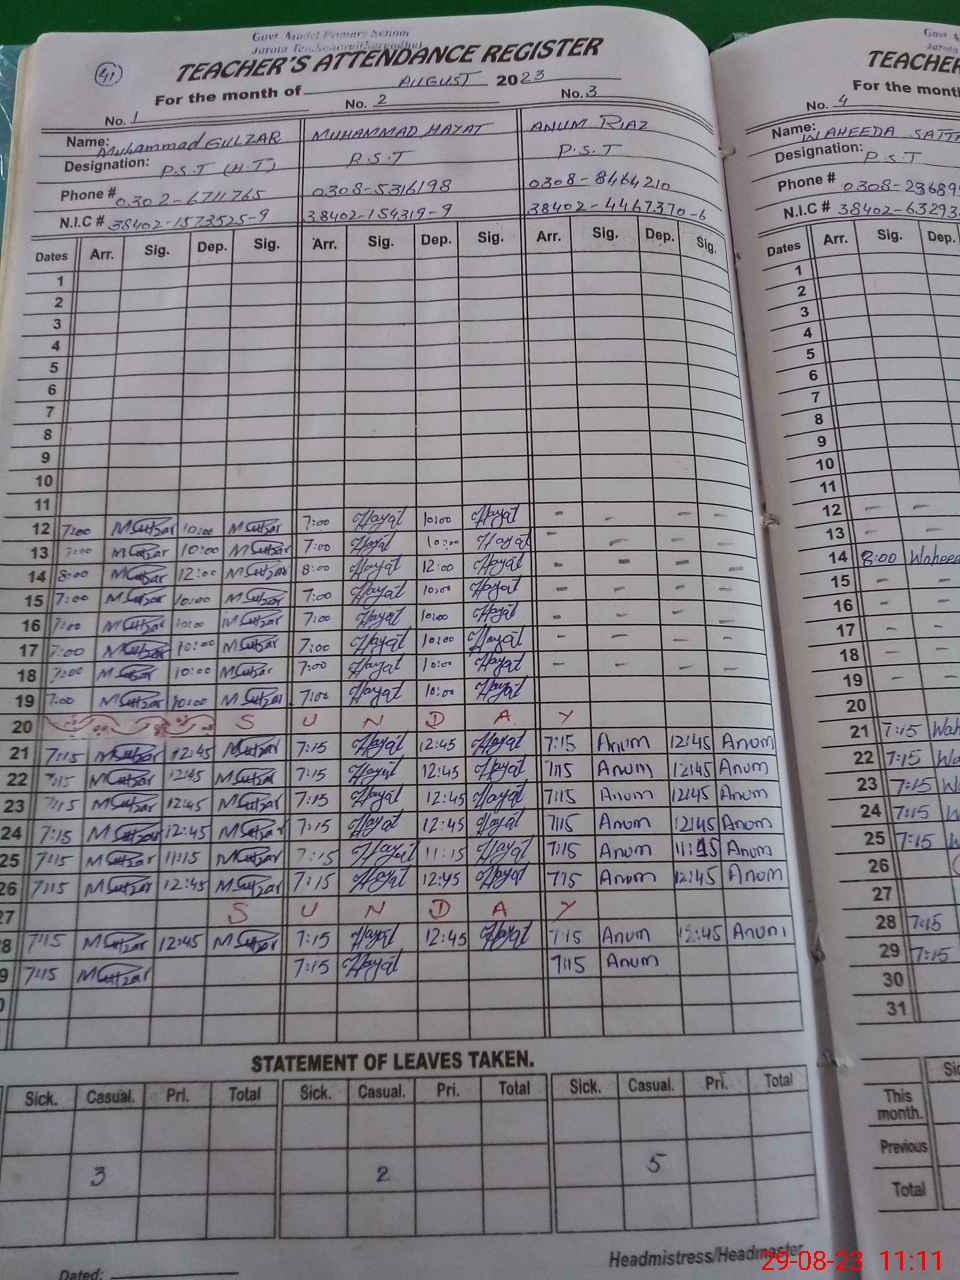 Govt Model Primary School
41
TEACHER'S ATTENDANCE REGISTER
For the month of AUGUST 2023
No. 1 No. 2 No. 3
Name: Muhammad GULZAR MUHAMMAD HAYAT ANUM RIAZ
Designation: P.S.T (H.T) P.S.T P.S.T
Phone # 0302-6711765 0308-5316198 0308-8464210
N.I.C # 38402-1573525-9 38402-154319-9 38402-4467370-6
Dates Arr. Sig. Dep. Sig. Arr. Sig. Dep. Sig. Arr. Sig. Dep. Sig.
1
2
3
4
5
6
7
8
9
10
11
12 7:00 MGulzar 10:00 MGulzar 7:00 Hayat 10:00 Hayat - - - -
13 7:00 MGulzar 10:00 MGulzar 7:00 Hayat 10:00 Hayat - - - -
14 8:00 MGulzar 12:00 MGulzar 8:00 Hayat 12:00 Hayat - - - -
15 7:00 MGulzar 10:00 MGulzar 7:00 Hayat 10:00 Hayat - - - -
16 7:00 MGulzar 10:00 MGulzar 7:00 Hayat 10:00 Hayat - - - -
17 7:00 MGulzar 10:00 MGulzar 7:00 Hayat 10:00 Hayat - - - -
18 7:00 MGulzar 10:00 MGulzar 7:00 Hayat 10:00 Hayat - - - -
19 7:00 MGulzar 10:00 MGulzar 7:00 Hayat 10:00 Hayat
20 S U N D A Y
21 7:15 MGulzar 12:45 MGulzar 7:15 Hayat 12:45 Hayat 7:15 Anum 12:45 Anum
22 7:15 MGulzar 12:45 MGulzar 7:15 Hayat 12:45 Hayat 7:15 Anum 12:45 Anum
23 7:15 MGulzar 12:45 MGulzar 7:15 Hayat 12:45 Hayat 7:15 Anum 12:45 Anum
24 7:15 MGulzar 12:45 MGulzar 7:15 Hayat 12:45 Hayat 7:15 Anum 12:45 Anum
25 7:15 MGulzar 11:15 MGulzar 7:15 Hayat 11:15 Hayat 7:15 Anum 11:15 Anum
26 7:15 MGulzar 12:45 MGulzar 7:15 Hayat 12:45 Hayat 7:15 Anum 12:45 Anum
27 S U N D A Y
8 7:15 MGulzar 12:45 MGulzar 7:15 Hayat 12:45 Hayat 7:15 Anum 12:45 Anum
9 7:15 MGulzar 7:15 Hayat 7:15 Anum
STATEMENT OF LEAVES TAKEN.
Sick. Casual. Pri. Total Sick. Casual. Pri. Total Sick. Casual. Pri. Total
3 2 5
Dated: Headmistress/Headmaster
TEACHER
For the month
No. 4
Name: WAHEEDA
Designation: P.S.T
Phone # 0308-23689
N.I.C # 38402-63293
Dates Arr. Sig. Dep.
1
2
3
4
5
6
7
8
9
10
11
12 - -
13 -
14 8:00 Waheed
15 - -
16 - -
17 - -
18 - -
19 - -
20
21 7:15 Wah
22 7:15 Wa
23 7:15 W
24 7:15 W
25 7:15 W
26
27
28 7:15
29 7:15
30
31
Sic
This month.
Previous
Total
29-08-23 11:11